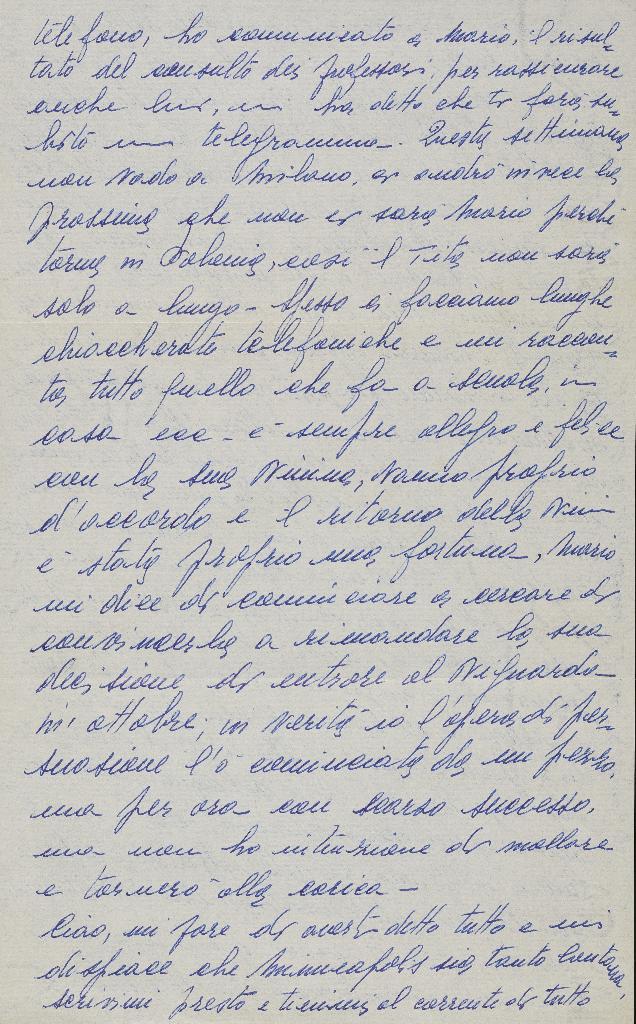 telefono, ho comunicato a Mario, il risul-
tato del consulto dei professori, per rassicurare
anche lui, mi ha detto che ti farà su-
bito un telegramma. Questa settimana
non vado a Milano, ci andrò invece la
prossima che non ci sarà Mario perché
torna in Polonia, così il Tita non sarà
solo a lungo - Spesso ci facciamo lunghe
chiaccherate telefoniche e mi raccon-
ta tutto quello che fa a scuola, in
casa ecc - è sempre allegro e felice
con la sua Ninina, vanno proprio
d'accordo e il ritorno della Nini
è stata proprio una fortuna, Mario
mi dice di cominciare a cercare di
convincerla a rimandare la sua
decisione di entrare al Niguarda
in ottobre, in verità io l'opera di per-
suasione l'ò cominciata da un pezzo,
ma per ora con scarso successo,
ma non ho intenzione di mollare
e tornerò alla carica -
Ciao, mi pare di averti detto tutto e mi
dispiace che Minneapolis sia tanto lontana,
scrivimi presto e tienimi al corrente di tutto